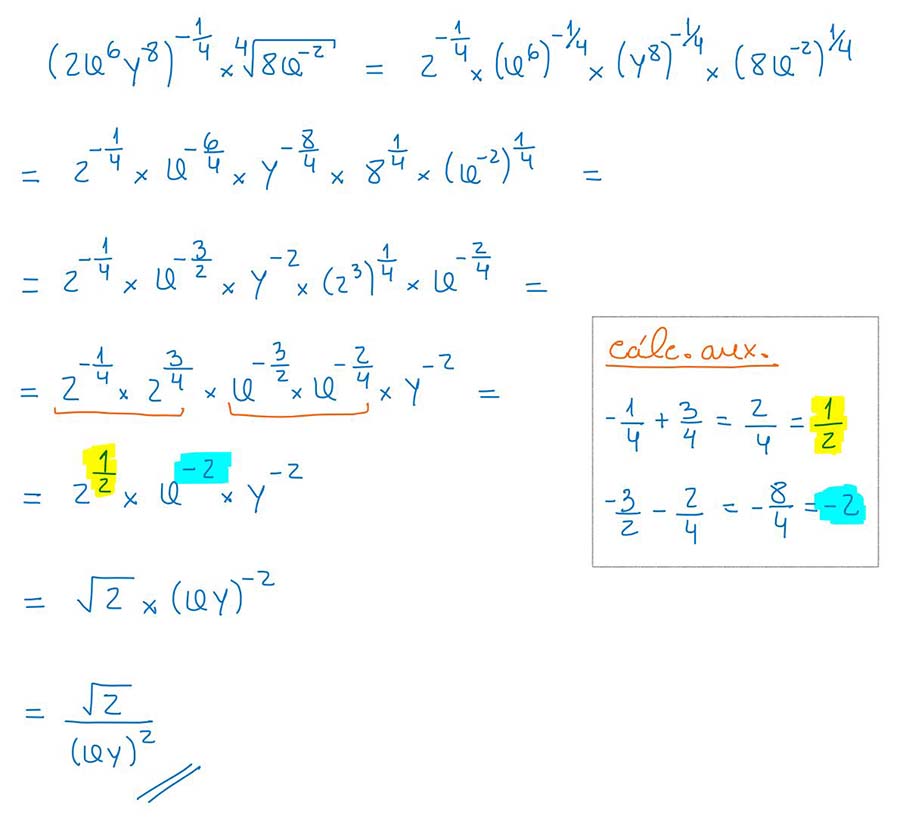 (2x⁶y⁸)^(-1/4) × ⁴√(8x⁻²) = 2^(-1/4) × (x⁶)^(-1/4) × (y⁸)^(-1/4) × (8x⁻²)^(1/4)
= 2^(-1/4) × x^(-6/4) × y^(-8/4) × 8^(1/4) × (x⁻²)^(1/4) =
= 2^(-1/4) × x^(-3/2) × y⁻² × (2³)^(1/4) × x^(-2/4) =
= 2^(-1/4) × 2^(3/4) × x^(-3/2) × x^(-2/4) × y⁻² =
= 2^(1/2) × x⁻² × y⁻²
= √2 × (xy)⁻²
= √2/(xy)²
cálc. aux.
-1/4 + 3/4 = 2/4 = 1/2
-3/2 - 2/4 = -8/4 = -2